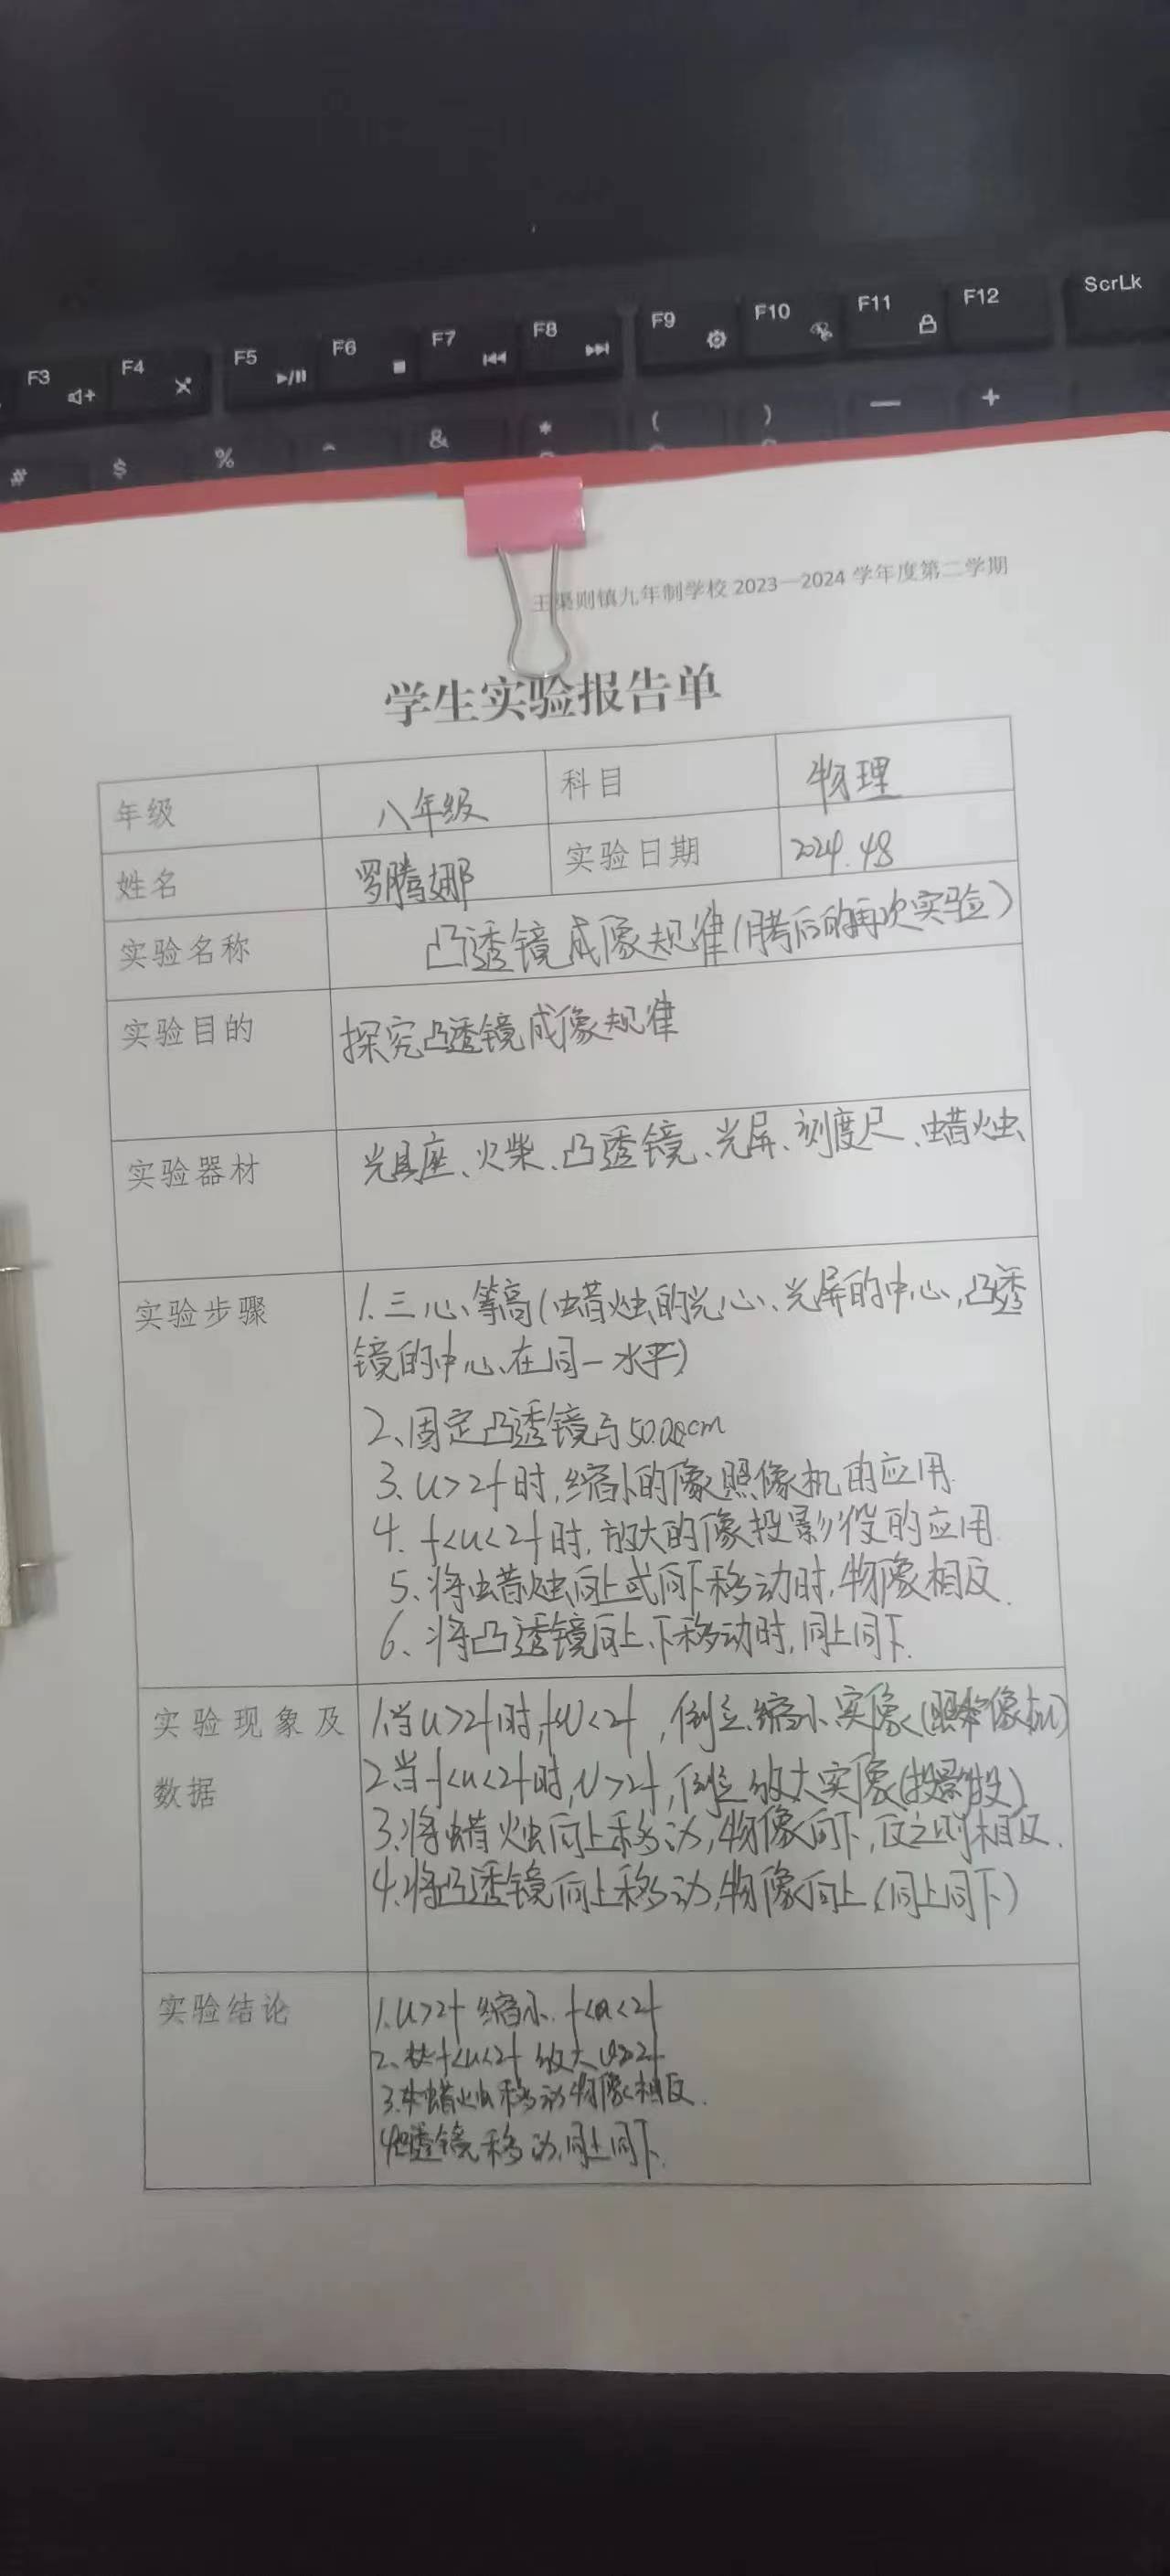 ScrLk
F12
F11
F10
F9
F8
F7
F6
F5
F4
F3
# $ % ^ & * ( ) — +
王渠则镇九年制学校 2023—2024 学年度第二学期
学生实验报告单
年级 八年级 科目 物理
姓名 罗腾娜 实验日期 2024.4.8
实验名称 凸透镜成像规律(月考后的再次实验)
实验目的 探究凸透镜成像规律
实验器材 光具座、火柴、凸透镜、光屏、刻度尺、蜡烛
实验步骤 1.三心等高(蜡烛的光心、光屏的中心,凸透
镜的中心在同一水平)
2、固定凸透镜与50.00cm
3、u>2f时,缩小的像照像机的应用.
4. f<u<2f时,放大的像投影仪的应用.
5、将蜡烛向上或向下移动时,物像相反.
6、将凸透镜向上、下移动时,同上同下.
实验现象及 1.当u>2f时,f<v<2f,倒立、缩小实像(照像机)
数据 2.当f<u<2f时,v>2f,倒立放大实像
3.将蜡烛向上移动,物像向下,反之则相反.
4.将凸透镜向上移动,物像向上(同上同下)
实验结论 1.u>2f 缩小.
2、f<u<2f 放大
3.蜡烛移动物像相反.
4.凸透镜移动,同上同下.